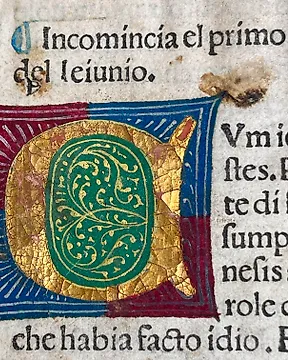 ¶ Incomincia el primo
del leiunio.
CVm ie
stes. P
te di s
sump
nesis
role d
che habia facto idio. E